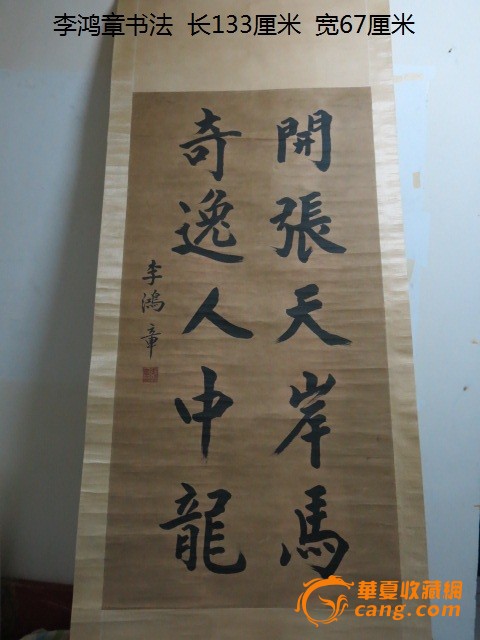 李鸿章书法 长133厘米 宽67厘米
開張天岸馬
奇逸人中龍
李鴻章
華夏收藏網
cang.com